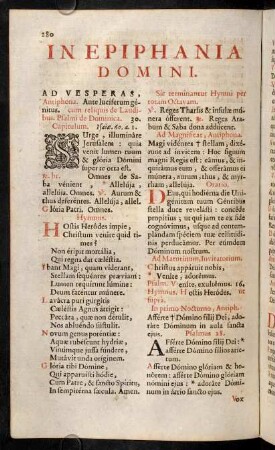 280
IN EPIPHANIA
DOMINI.
AD VESPERAS,
Antiphona. Ante luciferum génitus. cum reliquis de Laudibus. Psalmi de Dominica. 30.
Capitulum. Isaiæ. 60. a. 1.
SUrge, illumináre
Jerusalem: quia
venit lumen tuum
& glória Dómini
super te orta est.
℟. br. Omnes de Saba vénient, * Allelúja,
allelúja. Omnes. ℣. Aurum &
thus deferéntes. Allelúja, allel.
Glória Patri. Omnes.
Hymnus.
HOstis Heródes ímpie,
Christum veníre quid times?
Non éripit mortália,
Qui regna dat cæléstia.
Ibant Magi, quam víderant,
Stellam sequéntes præviam:
Lumen requírunt lúmine:
Deum faténtur múnere.
Lavácra puri gúrgitis
Cæléstis Agnus áttigit:
Peccáta, quæ non détulit,
Nos abluéndo sústulit.
Novum genus poténtiæ:
Aquæ rubéscunt hýdriæ,
Vinúmque jussa fúndere,
Mutávit unda oríginem.
Glória tibi Dómine,
Qui apparuísti hódie,
Cum Patre, & sancto Spíritu,
In sempitérna sæcula. Amen.
Sic terminantur Hymni per
totam Octavam.
℣. Reges Tharsis & ínsulæ múnera ófferent. ℟. Reges Arabum & Saba dona addúcent.
Ad Magnificat, Antiphona.
Magi vidéntes † stellam, dixérunt ad ínvicem: Hoc signum
magni Regis est: eámus, & inquirámus eum, & offerámus
ei múnera, aurum, thus, &
myrrham, allelúja. Oratio.
DEus, qui hodiérna die Unigénitum tuum Géntibus
stella duce revelásti: concéde
propítius; ut qui jam te ex fide
cognóvimus, usque ad contemplándam spéciem tuæ celsitúdinis perducámur. Per eúmdem
Dóminum nostrum.
Ad Matutinum, Invitatorium.
Christus appáruit nobis,
* Veníte adorémus.
Psalm. Veníte, exultémus. 16.
Hymnus. Hostis Heródes. ut
suprà.
In primo Nocturno, Antiph.
Afférte † Dómino fílii Dei, adoráte Dóminum in aula sancta
ejus.
Psalmus 28.
AFférte Dómino fílii Dei: *
afférte Dómino fílios aríetum.
Afférte Dómino glóriam & honórem: afférte Dómino glóriam
nómini ejus: * adoráte Dóminum in átrio sancto ejus.
Vox